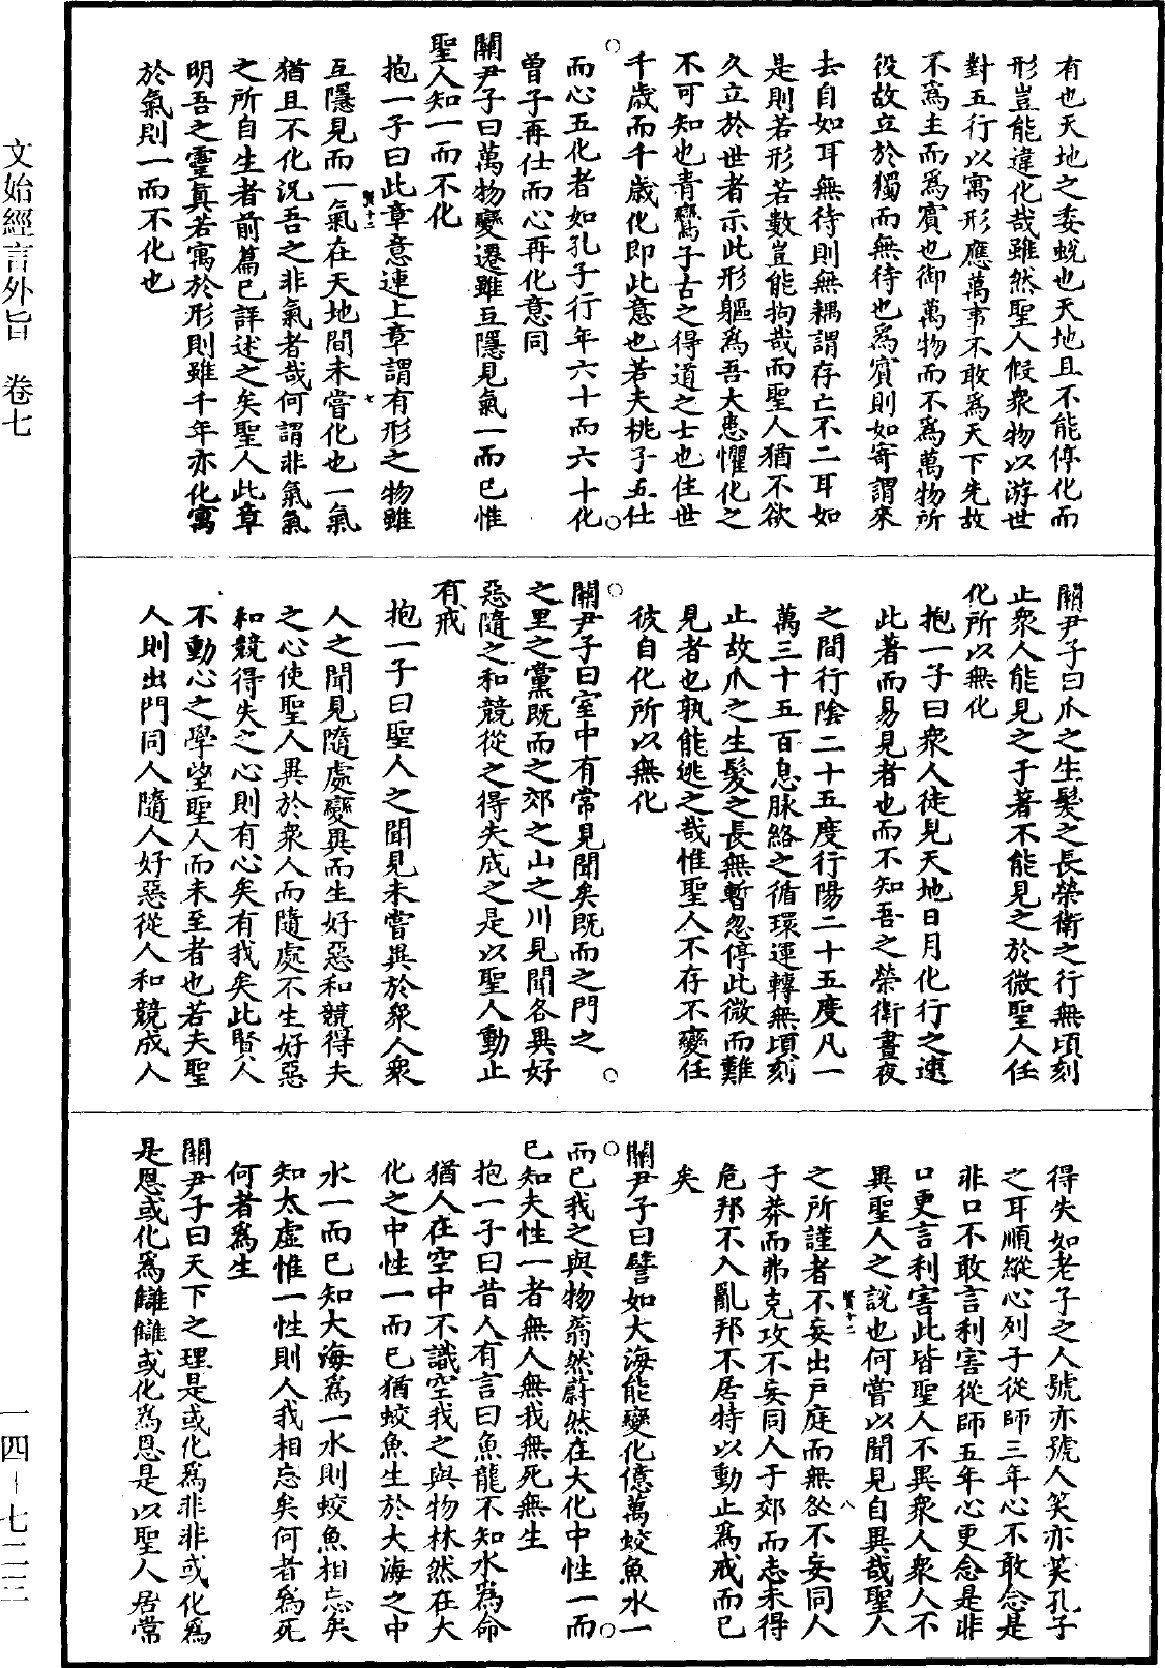 有也天地之委蛻也天地且不能停化而
形豈能違化哉雖然聖人假衆物以游世
對五行以寓形應萬事不敢爲天下先故
不爲主而爲賓也御萬物而不爲萬物所
役故立於獨而無待也爲賓則如寄謂來
去自如耳無待則無耦謂存亡不二耳如
是則若形若數豈能拘哉而聖人猶不欲
久立於世者示此形軀爲吾大患懼化之
不可知也青鸞子古之得道之士也住世
千歲而千歲化即此意也若夫桃子五仕
而心五化者如孔子行年六十而六十化
曾子再仕而心再化意同
關尹子曰萬物變遷雖互隱見氣一而已惟
聖人知一而不化
抱一子曰此章意連上章謂有形之物雖
互隱見而一氣在天地間未嘗化也一氣
猶且不化況吾之非氣者哉何謂非氣氣
之所自生者前篇已詳述之矣聖人此章
明吾之靈真若寓於形則雖千年亦化寓
於氣則一而不化也
關尹子曰爪之生髮之長榮衛之行無頃刻
止衆人能見之于著不能見之於微聖人任
化所以無化
抱一子曰衆人徒見天地日月化行之速
此著而易見者也而不知吾之榮衛晝夜
之間行陰二十五度行陽二十五度凡一
萬三十五百息脉絡之循環運轉無頃刻
止故爪之生髮之長無暫忽停此微而難
見者也孰能逃之哉惟聖人不存不變任
彼自化所以無化
關尹子曰室中有常見聞矣既而之門之
之里之黨既而之郊之山之川見聞各異好
惡隨之和競從之得失成之是以聖人動止
有戒
抱一子曰聖人之聞見未嘗異於衆人衆
人之聞見隨處變異而生好惡和競得失
之心使聖人異於衆人而隨處不生好惡
和競得失之心則有心矣有我矣此賢人
不動心之學望聖人而未至者也若夫聖
人則出門同人隨人好惡從人和競成人
得失如老子之人號亦號人笑亦笑孔子
之耳順縱心列子從師三年心不敢念是
非口不敢言利害從師五年心更念是非
口更言利害此皆聖人不異衆人衆人不
異聖人之說也何嘗以聞見自異哉聖人
之所謹者不妄出戶庭而無咎不妄同人
于莽而弗克攻不妄同人于郊而志未得
危邦不入亂邦不居特以動止爲戒而已
矣
關尹子曰譬如大海能變化億萬蛟魚水一
而已我之與物蓊然蔚然在大化中性一而
已知夫性一者無人無我無死無生
抱一子曰昔人有言曰魚龍不知水爲命
猶人在空中不識空我之與物林然在大
化之中性一而已猶蛟魚生於大海之中
水一而已知大海爲一水則蛟魚相忘矣
知太虛惟一性則人我相忘矣何者爲死
何者爲生
關尹子曰天下之理是或化爲非非或化爲
是恩或化爲讎讎或化爲恩是以聖人居常
賢十二
七
賢十二
八
文始經言外旨　卷七
一四－七二三